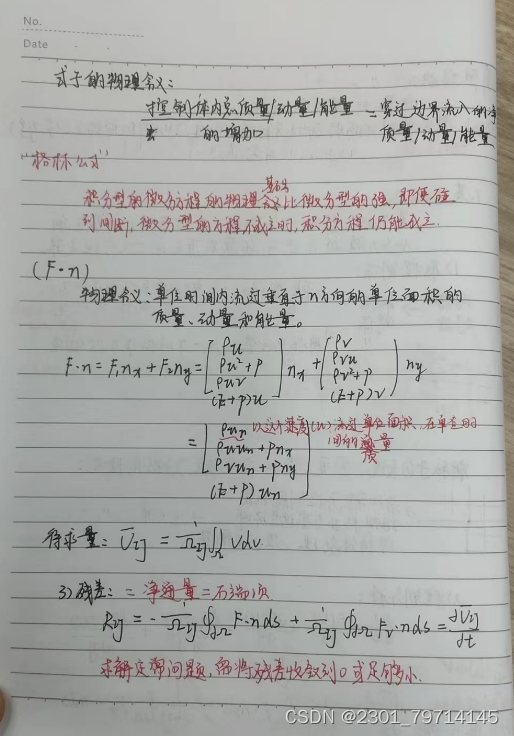 No.
Date
式子的物理含义：
控制体内总质量/动量/能量 = 穿过边界流入的净
的增加 质量/动量/能量
"格林公式"
基础
积分型的微分方程的物理含义比微分型的强,即便碰
到间断,微分型的方程不成立时,积分方程仍能成立.
(F·n)
物理含义:单位时间内流过垂直于n方向的单位面积的
质量、动量和能量。
F·n = F₁nx + F₂ny = [ρu ρu²+P ρuv (E+P)u] nx + [ρv ρvu ρv²+P (E+P)v] ny
= [ρun ρuun+Pnx ρvun+Pny (E+P)un]
以这个速度(u)流过单位面积,在单位时
间的质量
待求量: Ūij = 1/Ωij ∬Ω Udv.
3)残差: = 净通量 = 右端项
Rij = - 1/Ωij ∮∂Ω F·nds + 1/Ωij ∮∂Ω Fv·nds = ∂Ūij/∂t
求解定常问题,需将残差收敛到0或足够小.
CSDN @2301_79714145